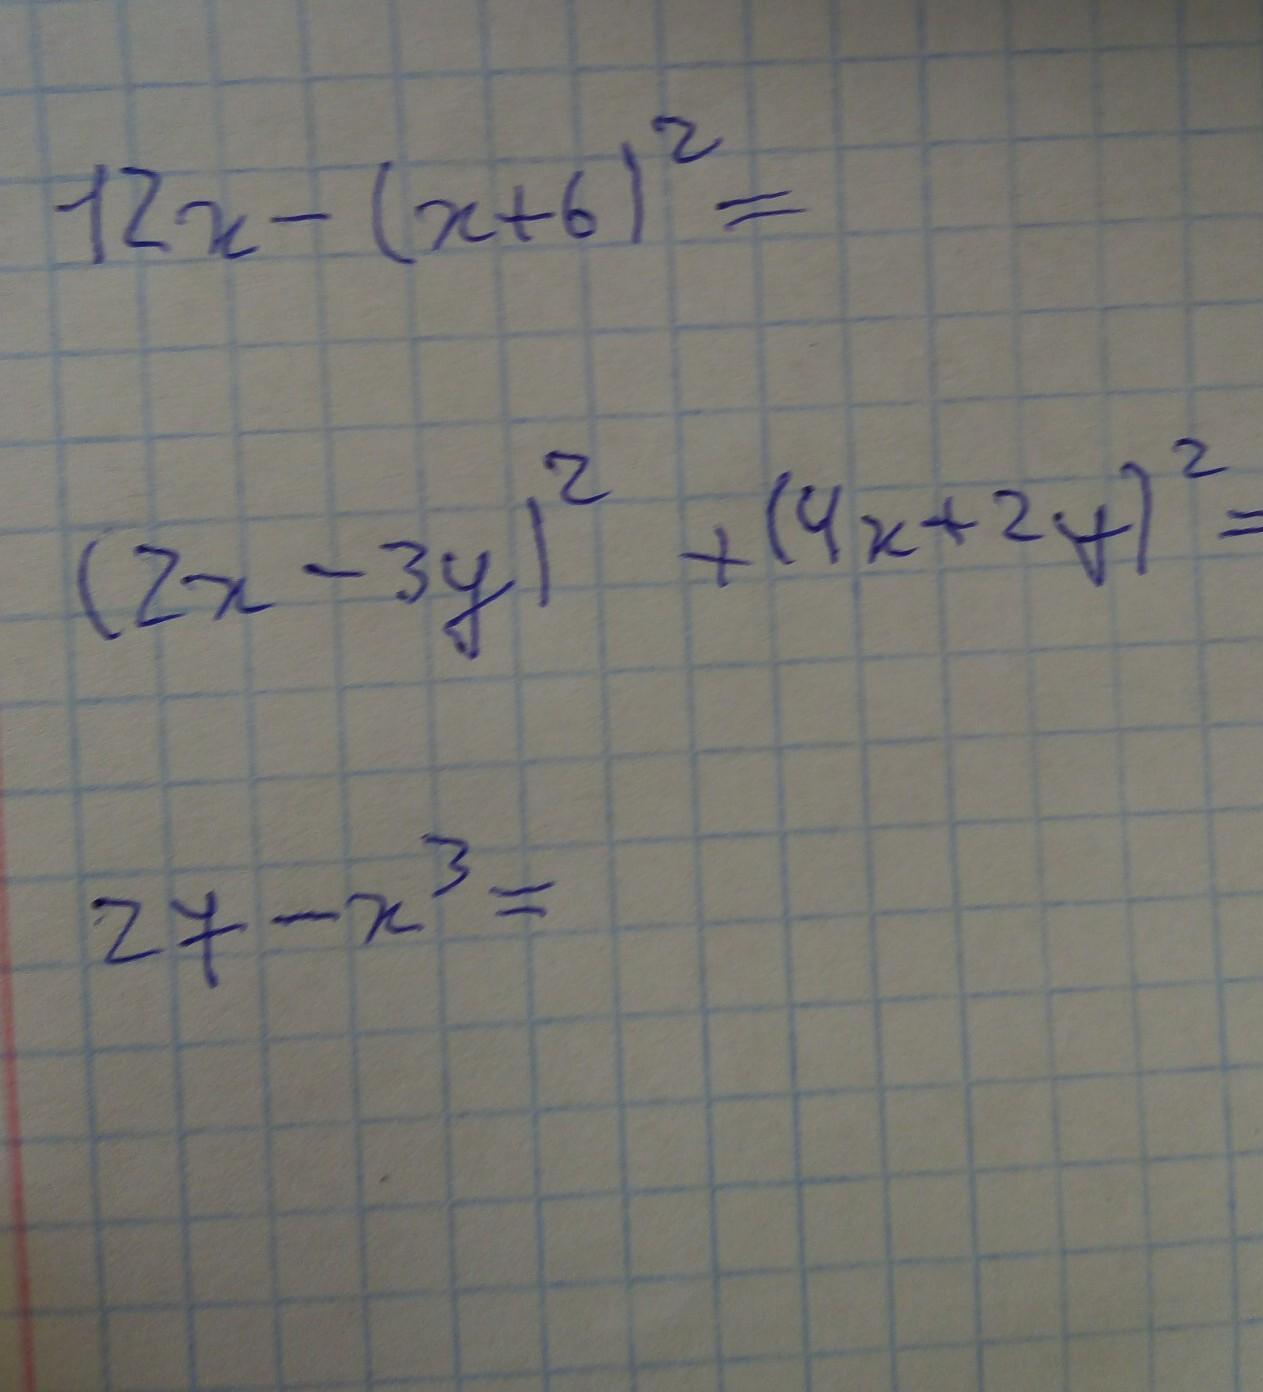 12x-(x+6)²=
(2x-3y)² +(4x+2y)²=
27-x³=